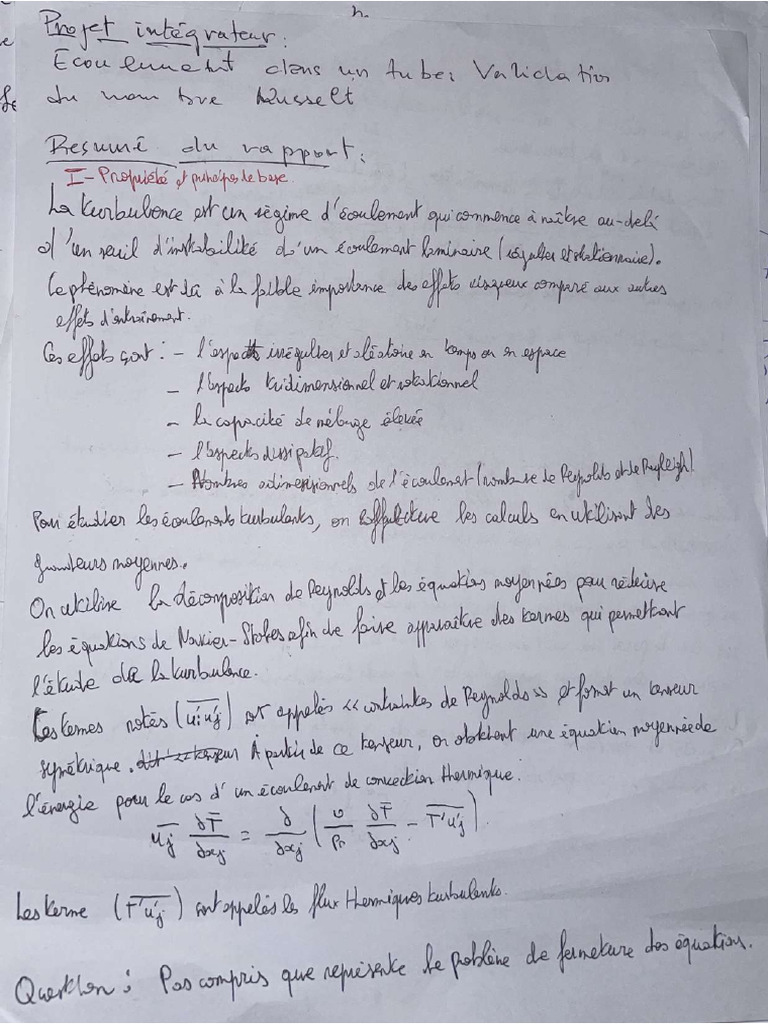 Projet intégrateur:
Ecoulement dans un tube: Validation
du nombre Nusselt
Resumé du rapport:
I- Propriété et principes de base
La turbulence est un régime d'écoulement qui commence à naître au-delà
d'un seuil d'instabilité d'un écoulement laminaire (régulier et stationnaire).
Ce phénomène est dû à la faible importance des effets visqueux comparé aux autres
effets d'entraînement.
Ces effets sont: - l'aspect irrégulier et aléatoire en temps ou en espace
- l'aspects tridimensionnel et rotationnel
- la capacité de mélange élevée
- l'aspects dissipatif.
- Nombres adimensionnels de l'écoulement (nombre de Reynolds et de Rayleigh)
Pour étudier les écoulements turbulents, on effectue les calculs en utilisant des
grandeurs moyennes.
On utilise la décomposition de Reynolds et les équations moyennées pour réduire
les équations de Navier-Stokes afin de faire apparaître des termes qui permettront
l'étude de la turbulence.
Les termes notés (\overline{u'_i u'_j}) sont appelés << contraintes de Reynolds >> et forment un tenseur
symétrique. À partir de ce tenseur, on obtient une équation moyennée de
l'énergie pour le cas d'un écoulement de convection thermique:
\overline{u_j} \frac{∂\overline{T}}{∂x_j} = \frac{∂}{∂x_j} ( \frac{υ}{Pr} \frac{∂\overline{T}}{∂x_j} - \overline{T'u'_j} ).
Les terme (\overline{T'u'_j}) sont appelés les flux thermiques turbulents.
Question: Pas compris que représente le problème de fermeture des équation.